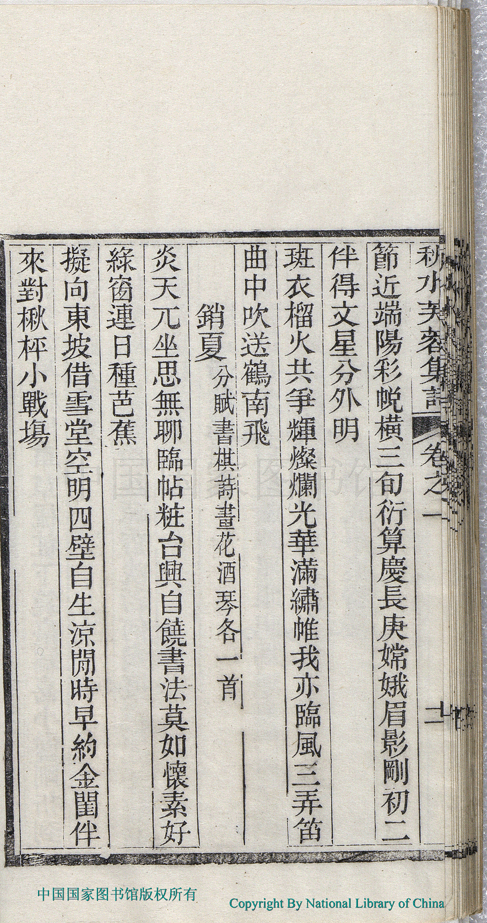 秋水芙蓉集詩 卷之一 十二
節近端陽彩帨橫三旬衍算慶長庚嫦娥眉影剛初二
伴得文星分外明
斑衣榴火共爭輝燦爛光華滿繡帷我亦臨風三弄笛
曲中吹送鶴南飛
銷夏 分賦書棋詩畫花酒琴各一首
炎天兀坐思無聊臨帖粧台興自饒書法莫如懷素好
綠窗連日種芭蕉
擬向東坡借雪堂空明四壁自生涼閒時早約金閨伴
來對楸枰小戰場
中国国家图书馆
中国国家图书馆版权所有
Copyright By National Library of China